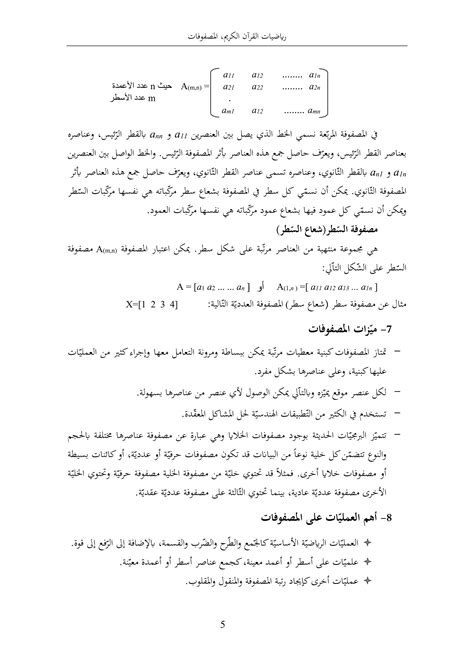 رياضيات القرآن الكريم، المصفوفات
A(m,n) = a11 a12 ........ a1n حيث n عدد الأعمدة
a21 a22 ........ a2n m عدد الأسطر
.
am1 a12 ........ amn
في المصفوفة المربّعة نسمي الخط الذي يصل بين العنصرين a11 و amn بالقطر الرّئيس، وعناصره
بعناصر القطر الرّئيس، ويعرّف حاصل جمع هذه العناصر بأثر المصفوفة الرّئيس. والخط الواصل بين العنصرين
a1n و an1 بالقطر الثّانوي، وعناصره تسمى عناصر القطر الثّانوي، ويعرّف حاصل جمع هذه العناصر بأثر
المصفوفة الثّانوي. يمكن أن نسمّي كل سطر في المصفوفة بشعاع سطر مركّباته هي نفسها مركّبات السّطر
ويمكن أن نسمّي كل عمود فيها بشعاع عمود مركّباته هي نفسها مركّبات العمود.
مصفوفة السّطر(شعاع السّطر)
هي مجموعة منتهية من العناصر مرتّبة على شكل سطر. يمكن اعتبار المصفوفة A(m,n) مصفوفة
السّطر على الشّكل التّالّي:
A = [a1 a2 ... ... an ] أو A(1,n ) =[ a11 a12 a13 ... a1n ]
مثال عن مصفوفة سطر (شعاع سطر) المصفوفة العدديّة التّالية: X=[1 2 3 4]
7- ميّزات المصفوفات
– تمتاز المصفوفات كبنية معطيات مرتّبة يمكن ببساطة ومرونة التعامل معها وإجراء كثير من العمليّات
عليها كبنية، وعلى عناصرها بشكل مفرد.
– لكل عنصر موقع يميّزه وبالتّالي يمكن الوصول لأي عنصر من عناصرها بسهولة.
– تستخدم في الكثير من التّطبيقات الهندسيّة لحل المشاكل المعقّدة.
– تتميّز البرمجيّات الحديثة بوجود مصفوفات الخلايا وهي عبارة عن مصفوفة عناصرها مختلفة بالحجم
والنوع تتضمّن كل خلية نوعاً من البيانات قد تكون مصفوفات حرفيّة أو عدديّة، أو كائنات بسيطة
أو مصفوفات خلايا أخرى. فمثلاً قد تحتوي خليّة من مصفوفة الخلية مصفوفة حرفيّة وتحتوي الخليّة
الأخرى مصفوفة عدديّة عادية، بينما تحتوي الثّالثة على مصفوفة عدديّة عقديّة.
8- أهم العمليّات على المصفوفات
✦ العمليّات الرياضيّة الأساسيّة كالجّمع والطّرح والضّرب والقسمة، بالإضافة إلى الرّفع إلى قوة.
✦ علميّات على أسطر أو أعمد معينة، كجمع عناصر أسطر أو أعمدة معيّنة.
✦ عمليّات أخرى كإيجاد رتبة المصفوفة والمنقول والمقلوب.
5